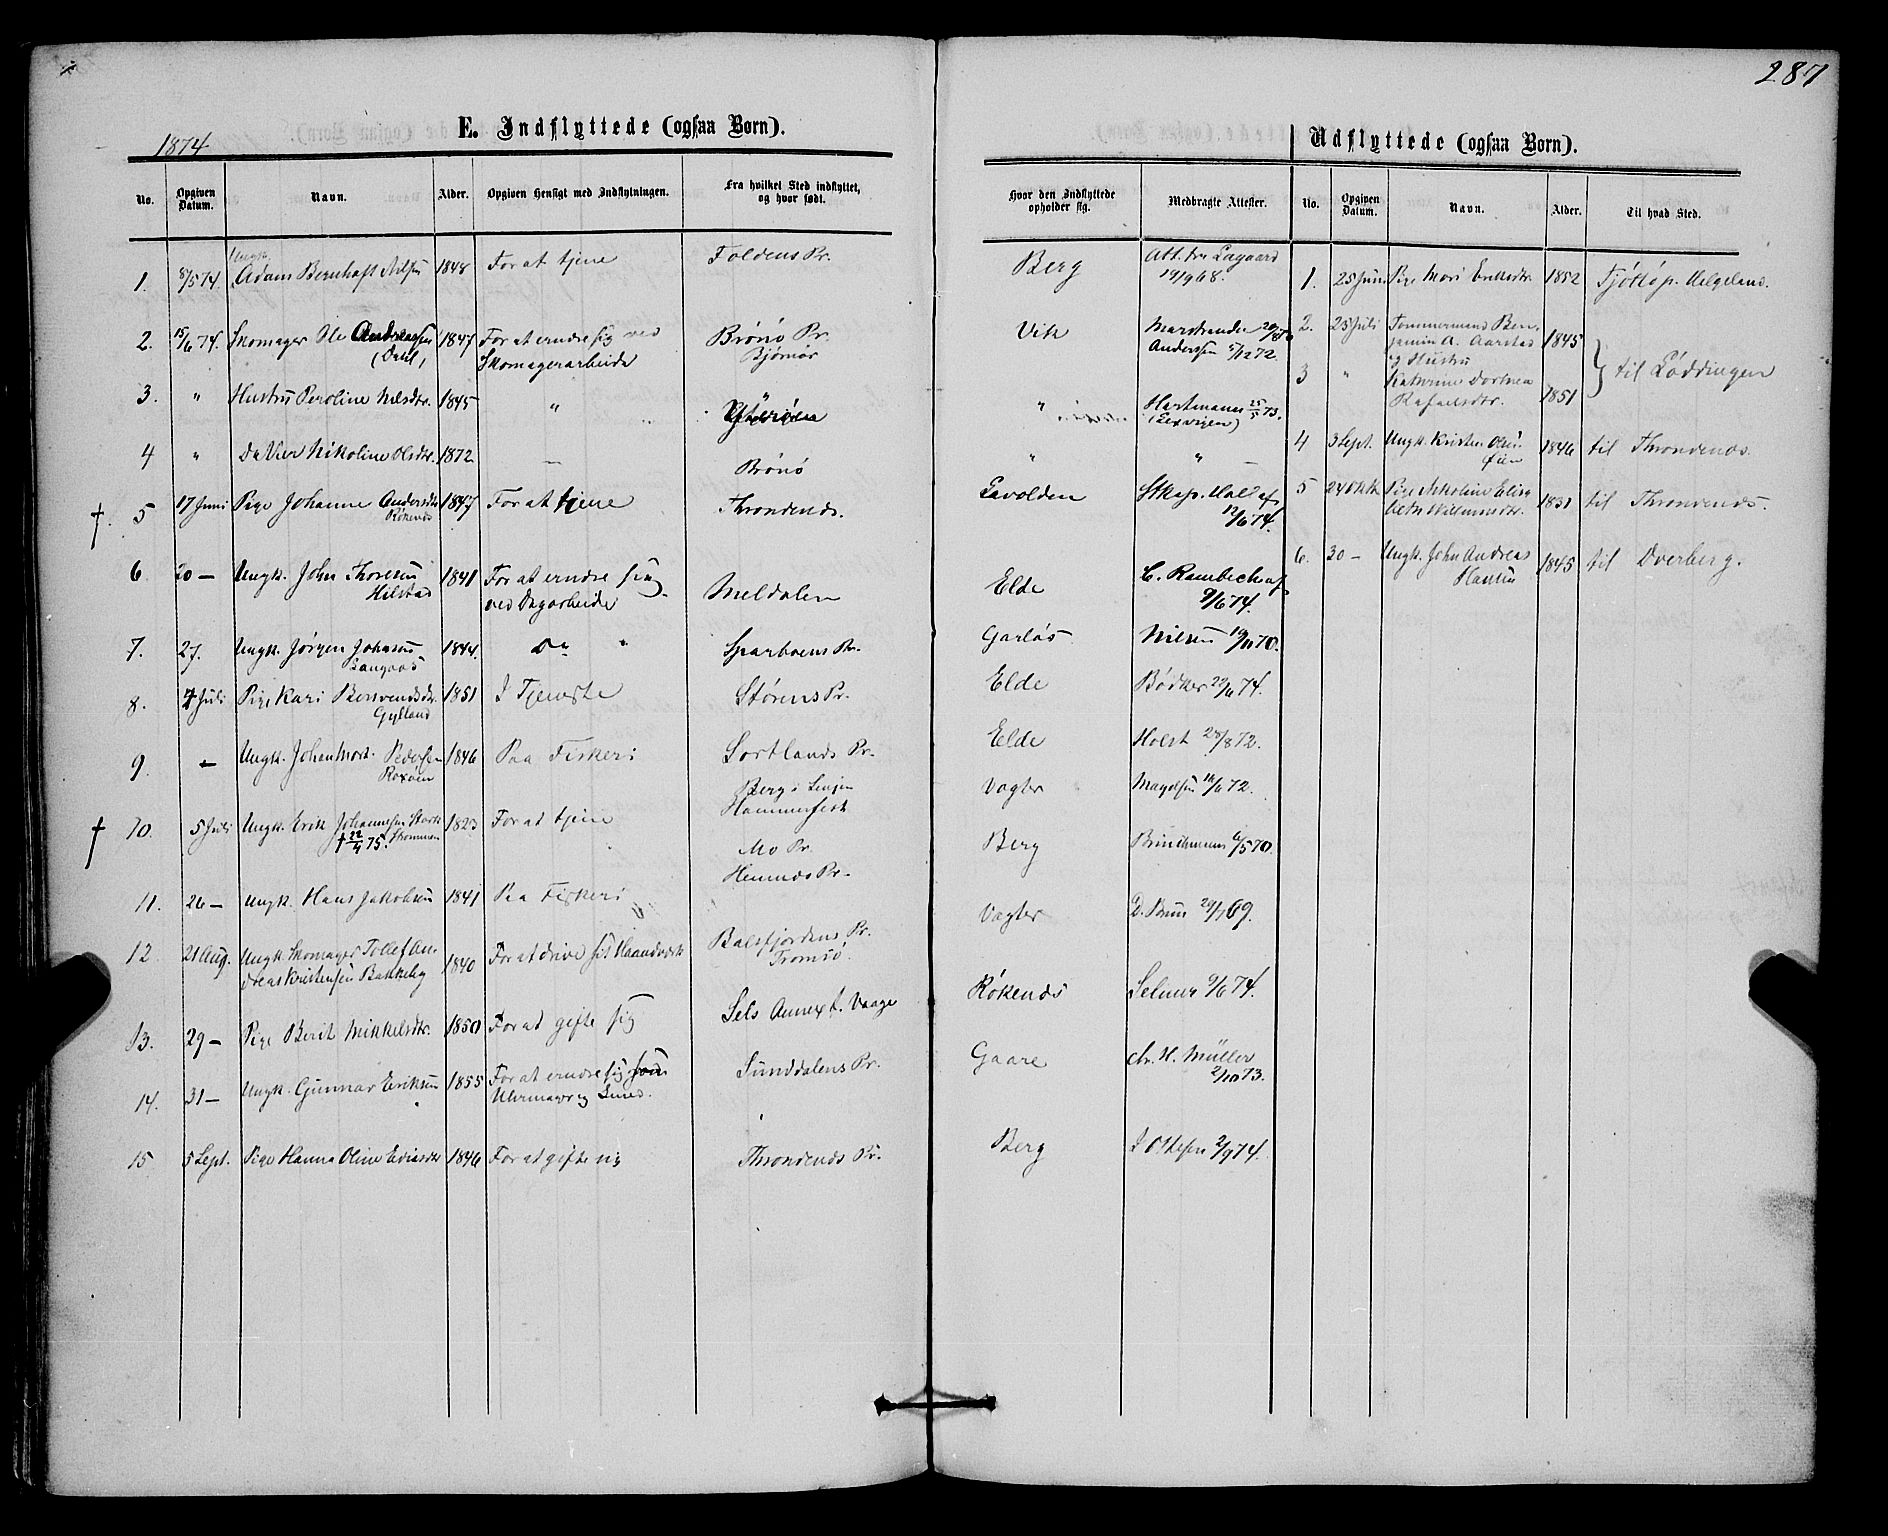 287
1874
E. Indflyttede (ogsaa Børn).
Udflyttede (ogsaa Børn).
No. Opgiven Datum. Navn. Alder. Opgiven Hensigt med Indflytningen. Fra hvilket Sted indflyttet, og hvor født. Hvor den Indflyttede opholder sig. Medbragte Attester.
1. 8/5 74. Ungk. Adam Bernhaft 1848 For at tjene Foldens Pr. Berg Att. fra Lagaard 19/9 68.
2. 15/6 74. Skomager Ole Andreassen (Dahl) 1847 For at ernære sig ved Skomagerarbeide Brønø Pr. Bjørnør Vik Marstrander Anderssen 5/12 72.
3. " Hustru Peroline Nilsdtr. 1845 " Ytterøen " Hartmann 25/5 73. (Lexvigen)
4 " Nikoline Olsdtr. 1872 — Brønø " "
†. 5 17 Juni Pige Johanne Andersdtr. Røkenæs 1847 For at tjene Throndenæs. Lavolden Stkap. Hall af 12/6 74.
6 20 — Ungk. John Thoresen Hilstad 1841 For at ernære sig ved Dagarbeide Meldalen Elde C. Rambech af 9/6 74.
7. 27. Ungk. Jørgen Johnsen Langaas 1844. Do " Sparboens Pr. Garløs Nilsen 19/11 70.
8. 4 Juli Pige Kari Bersvendsdr. Gylland 1851 I Tjeneste Størens Pr. Elde Bødker 22/6 74.
9. — Ungk. Johan Mort. Pedersen Roxøen 1846 Paa Fiskeri Sortlands Pr. Elde Holst 28/8 72.
Berg i Senjen Hammerfest Vogter 72.
† 10. 5 Juli Ungk. Erik Johannesen † 22/4 75. 1823 For at tjene Mo Pr. Berg Brinchmann 6/5 70.
11. 26 — Ungk. Hans Jakobsen 1841 Paa Fiskeri Hemnæs Pr. Vogter D. Bruun 29/7 69.
12. 21 Aug. Ungk. Skomager Tollef Andreas Kristensen Bakkeby 1840 For at drive sit Haandværk Balsfjordens Pr. Tromsø. Røkenæs Selmer 9/6 74.
13. 29 — Pige Berit Mikkelsdtr. 1850 For at gifte sig Sels Annex t. Vaage
14. 31 — Ungk. Gunnar Eriksen 1855 For at ernære sig som Uhrmager og Smed. Sunddalens Pr. Gaare Chr. H. Müller 2/10 73.
15 5 Sept. Pige Hanna Oline 1846 For at gifte sig Throndenæs Pr. Berg J Ottesen 2/9 74.
No. Opgiven Datum. Navn. Alder. Til hvad Sted.
1. 25 Juni Pige Mari Eriksdtr. 1852 Tjøttø p. Helgeland.
2. 25 Juli Tømmermand Benjamin A. Aarstad 1845
og Hustru
3 " Katrine Dorthea Rafaelsdtr. 1851 } til Løddingen
4 3 Sept. Ungk. Kristen Olsen 1846 til Throndenæs.
5 24 Okt. Pige Nikoline Elisabeth 1831 til Throndenæs.
6. 30 — Ungk. John Andreas Hansen 1845 til Dverberg.